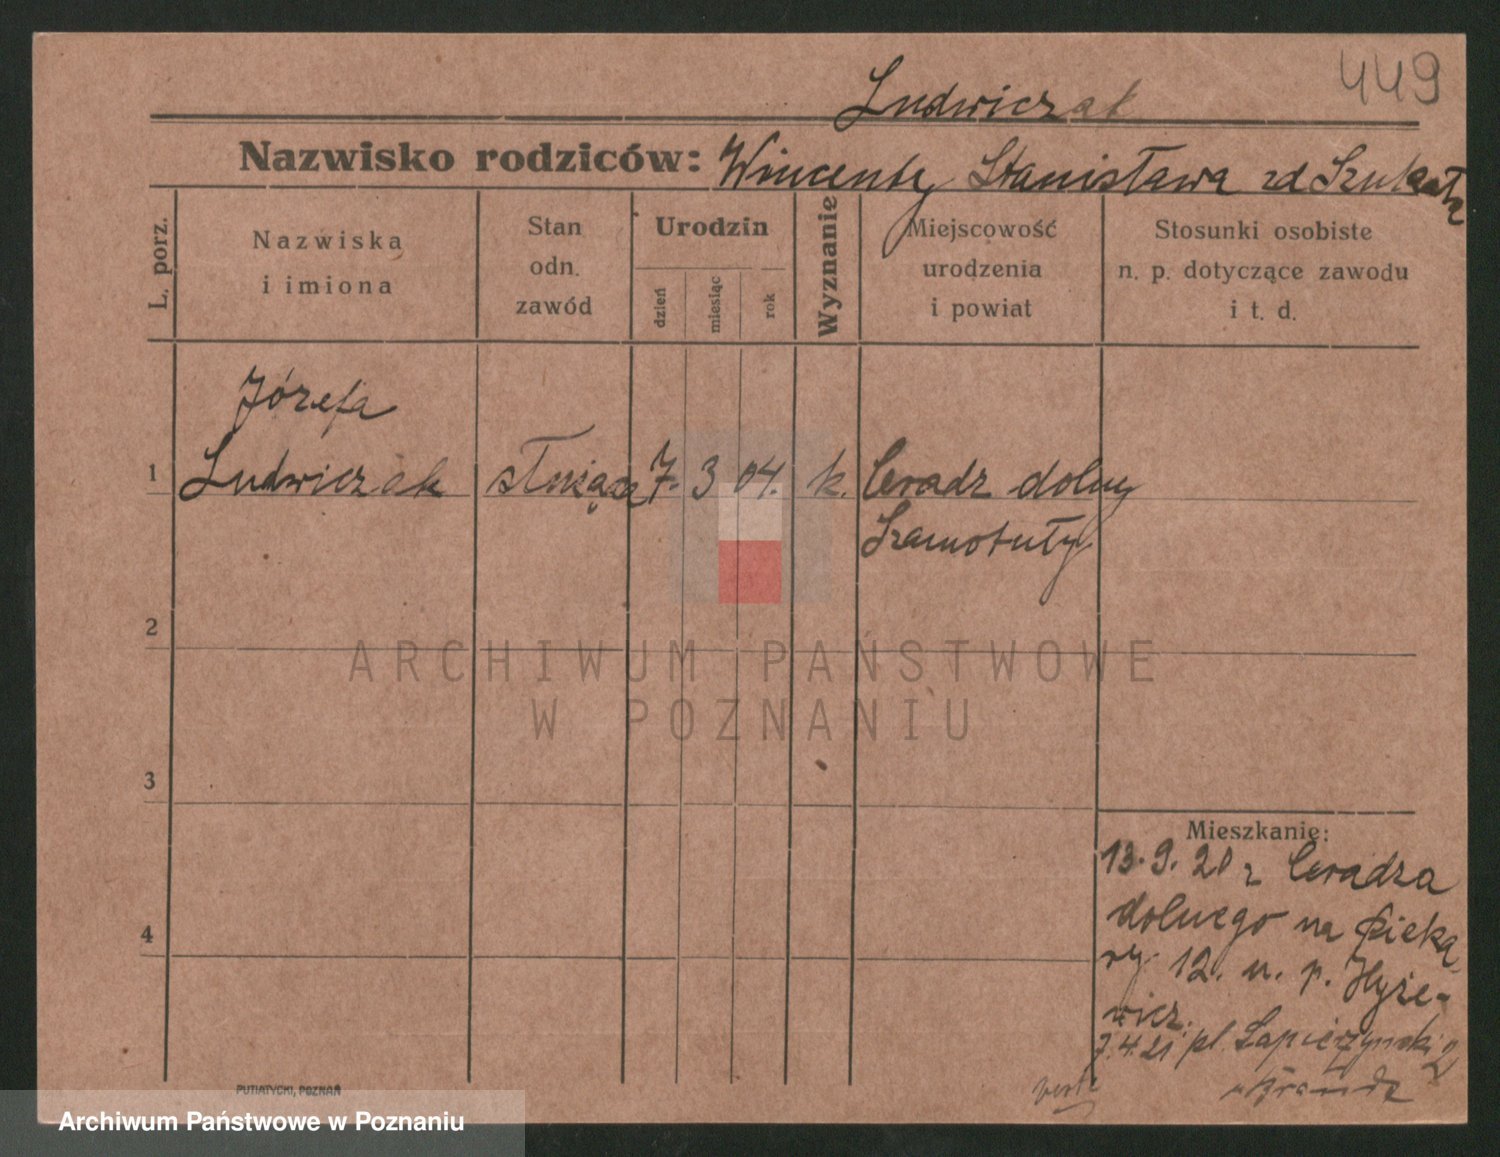 449
Ludwiczak
Nazwisko rodziców: Wincenty Stanisława zd Szukała
L. porz.
Nazwiska
i imiona
Stan
odn.
zawód
Urodzin
dzień
miesiąc
rok
Wyznanie
Miejscowość
urodzenia
i powiat
Stosunki osobiste
n. p. dotyczące zawodu
i t. d.
Józefa
1 Ludwiczak służąca 7. 3 04. k. Ceradz dolny
Szamotuły
2
ARCHIWUM PAŃSTWOWE
W POZNANIU
3
Mieszkanie:
13.9.20 z Ceradza
dolnego na Pieka
4
ry 12. u. p. Hyże-
wicz.
7.4.21 pl. Sapieżyński 2
u Brandt
PUTIATYCKI, POZNAŃ
Archiwum Państwowe w Poznaniu